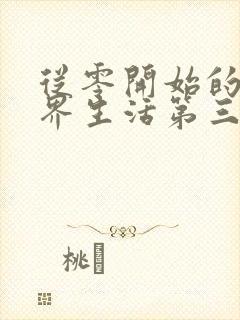 從零開始的
界生活第三
桃